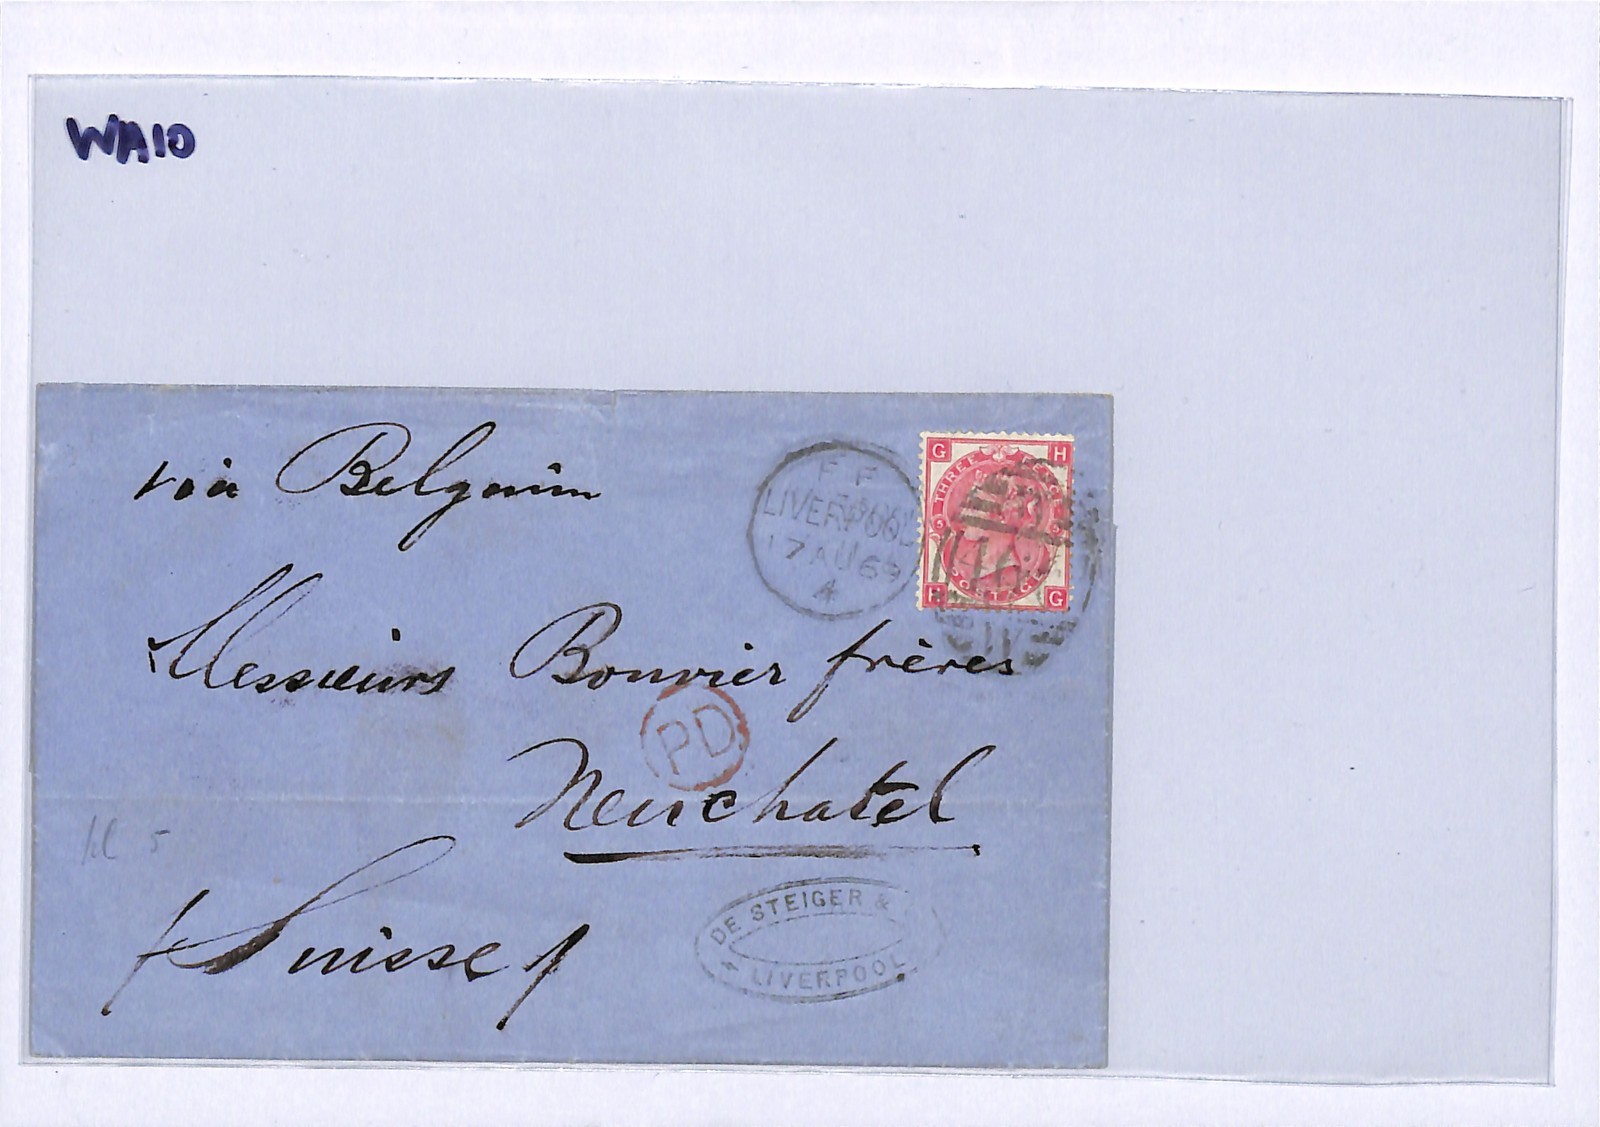 WA10
via Belgium
FF
LIVERPOOL
17 AU 69
A
G H
THREE PENCE
5
POSTAGE
H G
466
Messieurs Bouvier frères
PD
Neuchatel
Suisse
DE STEIGER &
LIVERPOOL